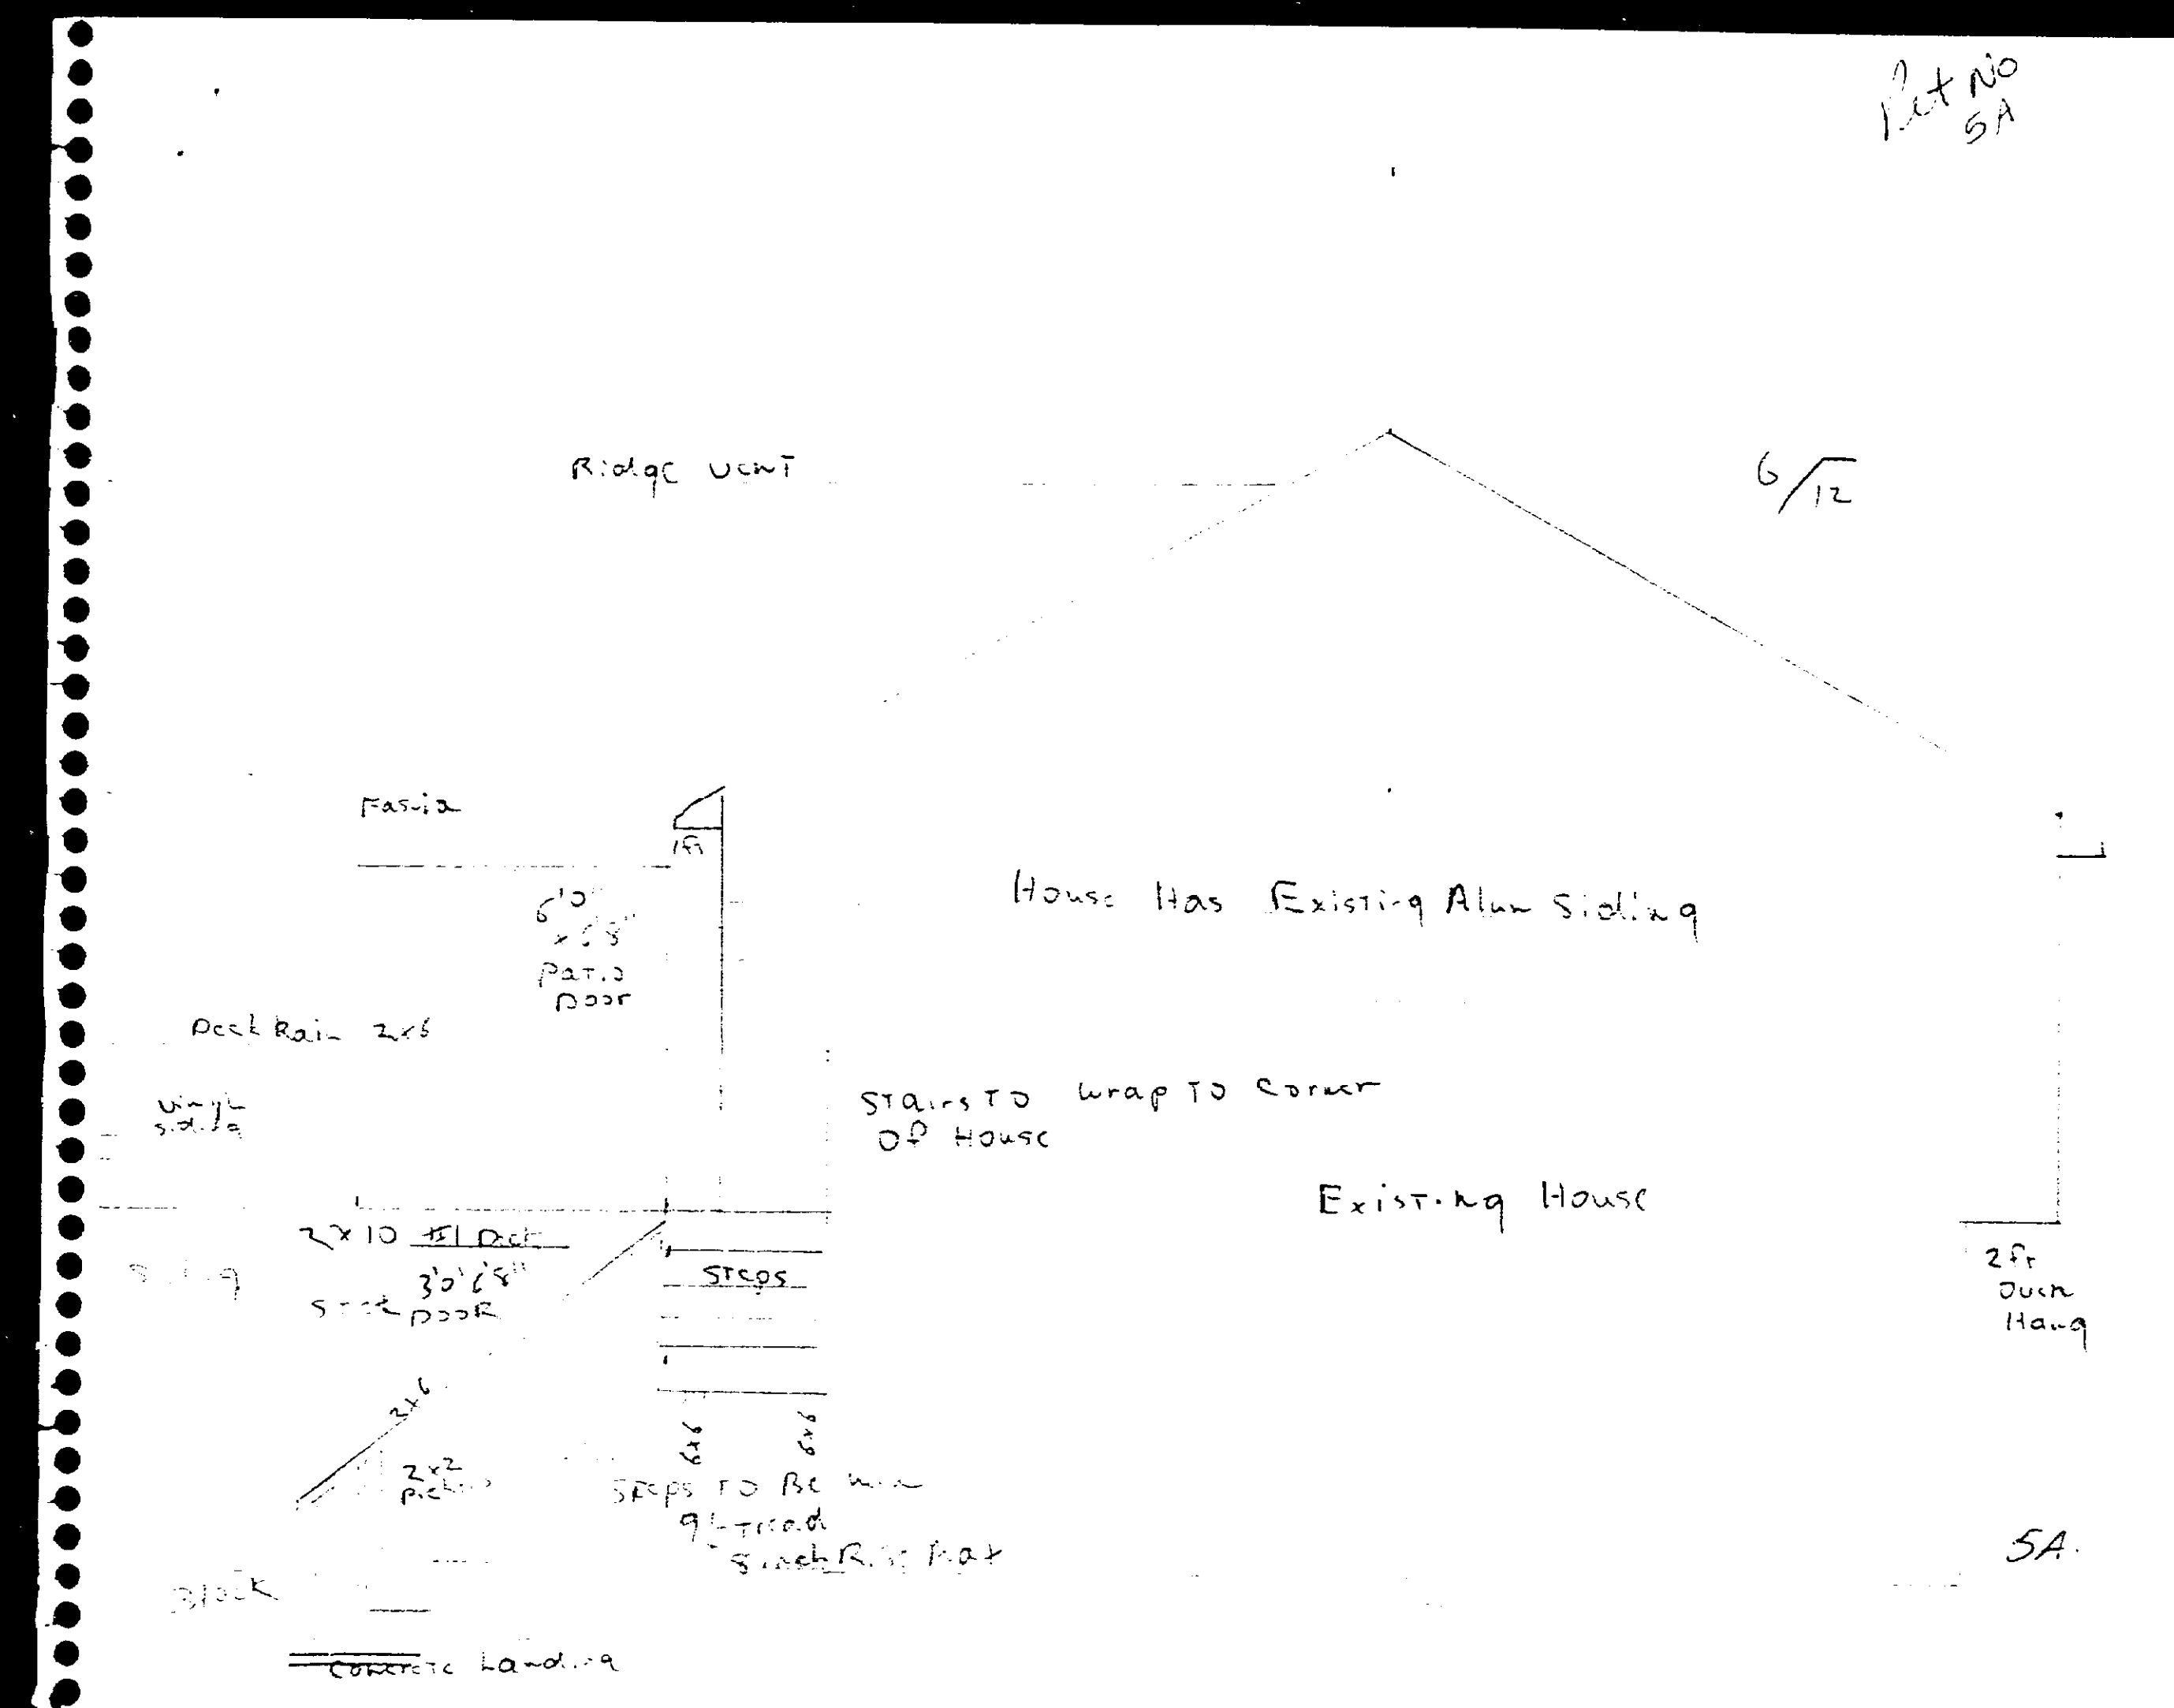 Pet No
5A
Ridge Vent
6/12
Fascia
1ft
6'0"
x 6'8"
Patio
Door
House Has Existing Alum Siding
Deck Rail 2x6
Vinyl
Siding
Stairs To Wrap To Corner
Of House
Existing House
2x10 #1 Deck
Siding
3'0"6'8"
Steel Door
Steps
2ft
Over
Hang
2x6
6x6 6x6
2x2
Pickets
Steps To Be min
9" Tread
8 inch Rise Max
5A.
Block
Concrete Landing